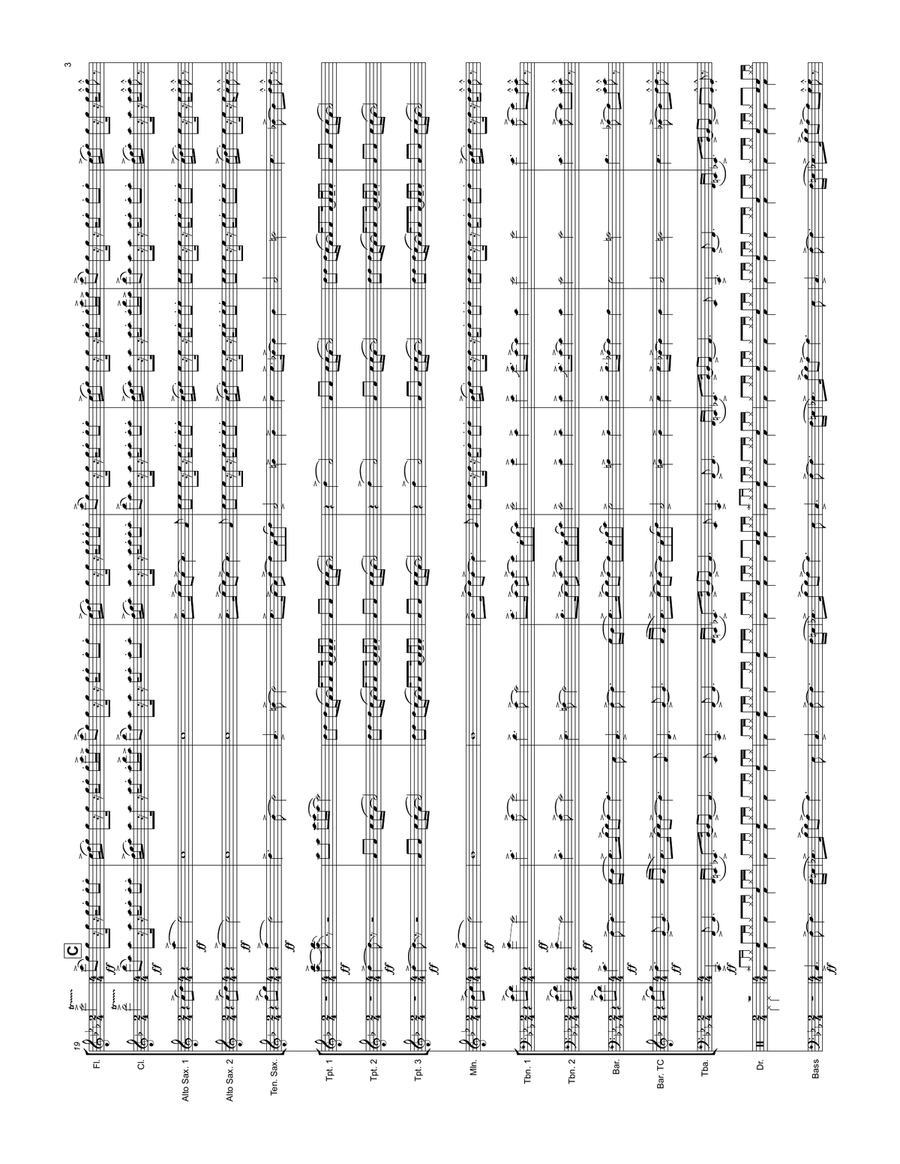 3
19
C
Fl.
tr
Cl.
tr
ff
ff
Alto Sax. 1
ff
Alto Sax. 2
ff
Ten. Sax.
ff
Tpt. 1
ff
Tpt. 2
ff
Tpt. 3
ff
Mln.
ff
Tbn. 1
ff
Tbn. 2
ff
Bar.
ff
Bar. TC
ff
Tba.
ff
Dr.
Bass
ff